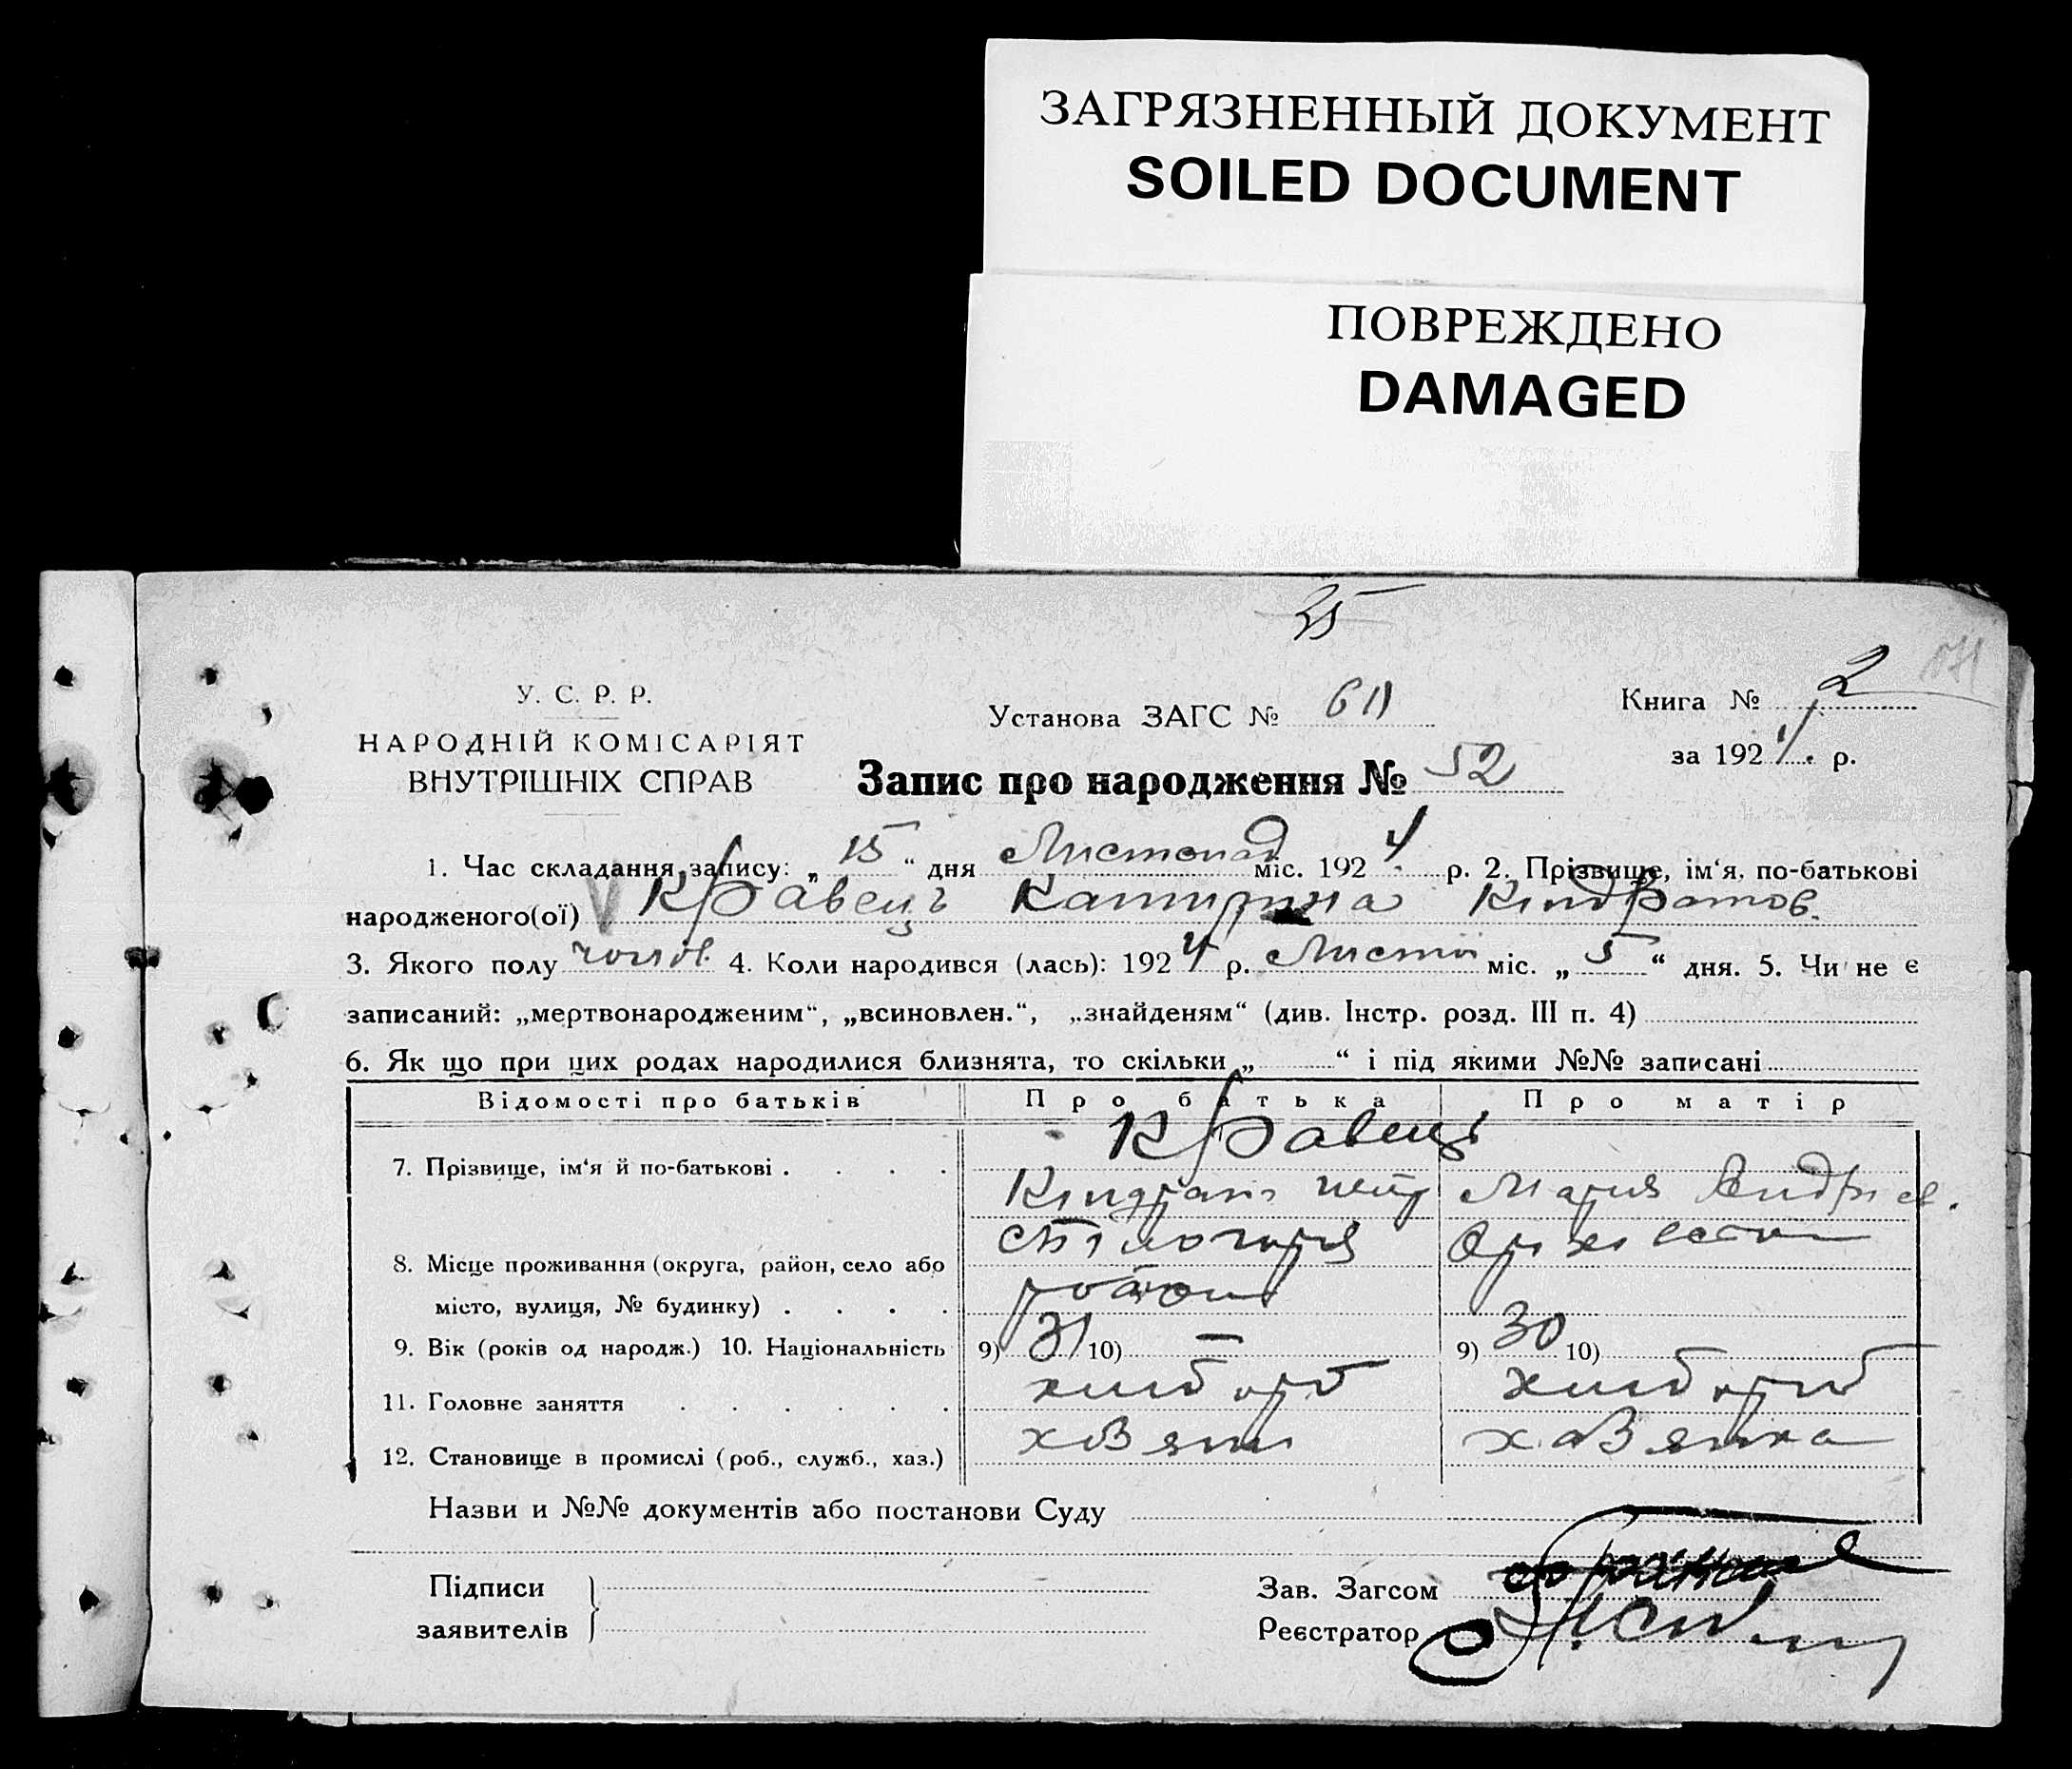 ЗАГРЯЗНЕННЫЙ ДОКУМЕНТ
SOILED DOCUMENT
ПОВРЕЖДЕНО
DAMAGED
25
У. С. Р. Р.
НАРОДНІЙ КОМІСАРІЯТ
ВНУТРІШНІХ СПРАВ
Установа ЗАГС №
Книга № 2
за 1924 р.
Запис про народження № 52
1. Час складання запису: „15“ дня Листопад міс. 1924 р. 2. Прізвище, ім‘я, по-батькові
народженого(ої) Кравець Катирина Кіндратов.
3. Якого полу 4. Коли народився (лась): 1924 р. Листоп міс. „5“ дня. 5. Чи не є
записаний: „мертвонародженим“, „всиновлен.“, „знайденям“ (див. Інстр. розд. III п. 4)
6. Як що при цих родах народилися близнята, то скільки „ “ і під якими №№ записані
Відомості про батьків Про батька Про матір
Кравець
7. Прізвище, ім‘я й по-батькові .
Кіндрат Мария Андрієв.
8. Місце проживання (округа, район, село або
місто, вулиця, № будинку) район
9. Вік (років од народж.) 10. Національність 9) 31 10) — 9) 30 10)
11. Головне заняття хлібороб хлібороб
12. Становище в промислі (роб., служб., хаз.) хазяїн хазяйка
Назви и №№ документів або постанови Суду
Підписи
заявителів
Зав. Загсом
Реєстратор